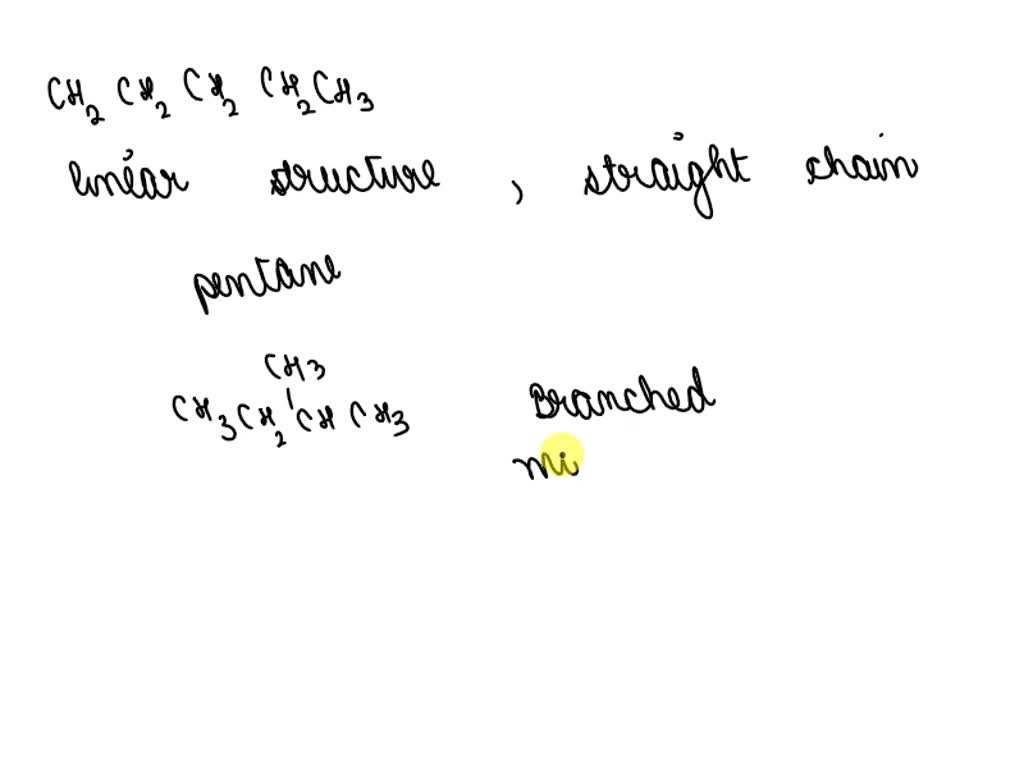 CH₂ CH₂ CH₂ CH₂CH₃
linear structure , straight chain
pentane
CH₃
CH₃CH₂CH CH₃ Branched
mi